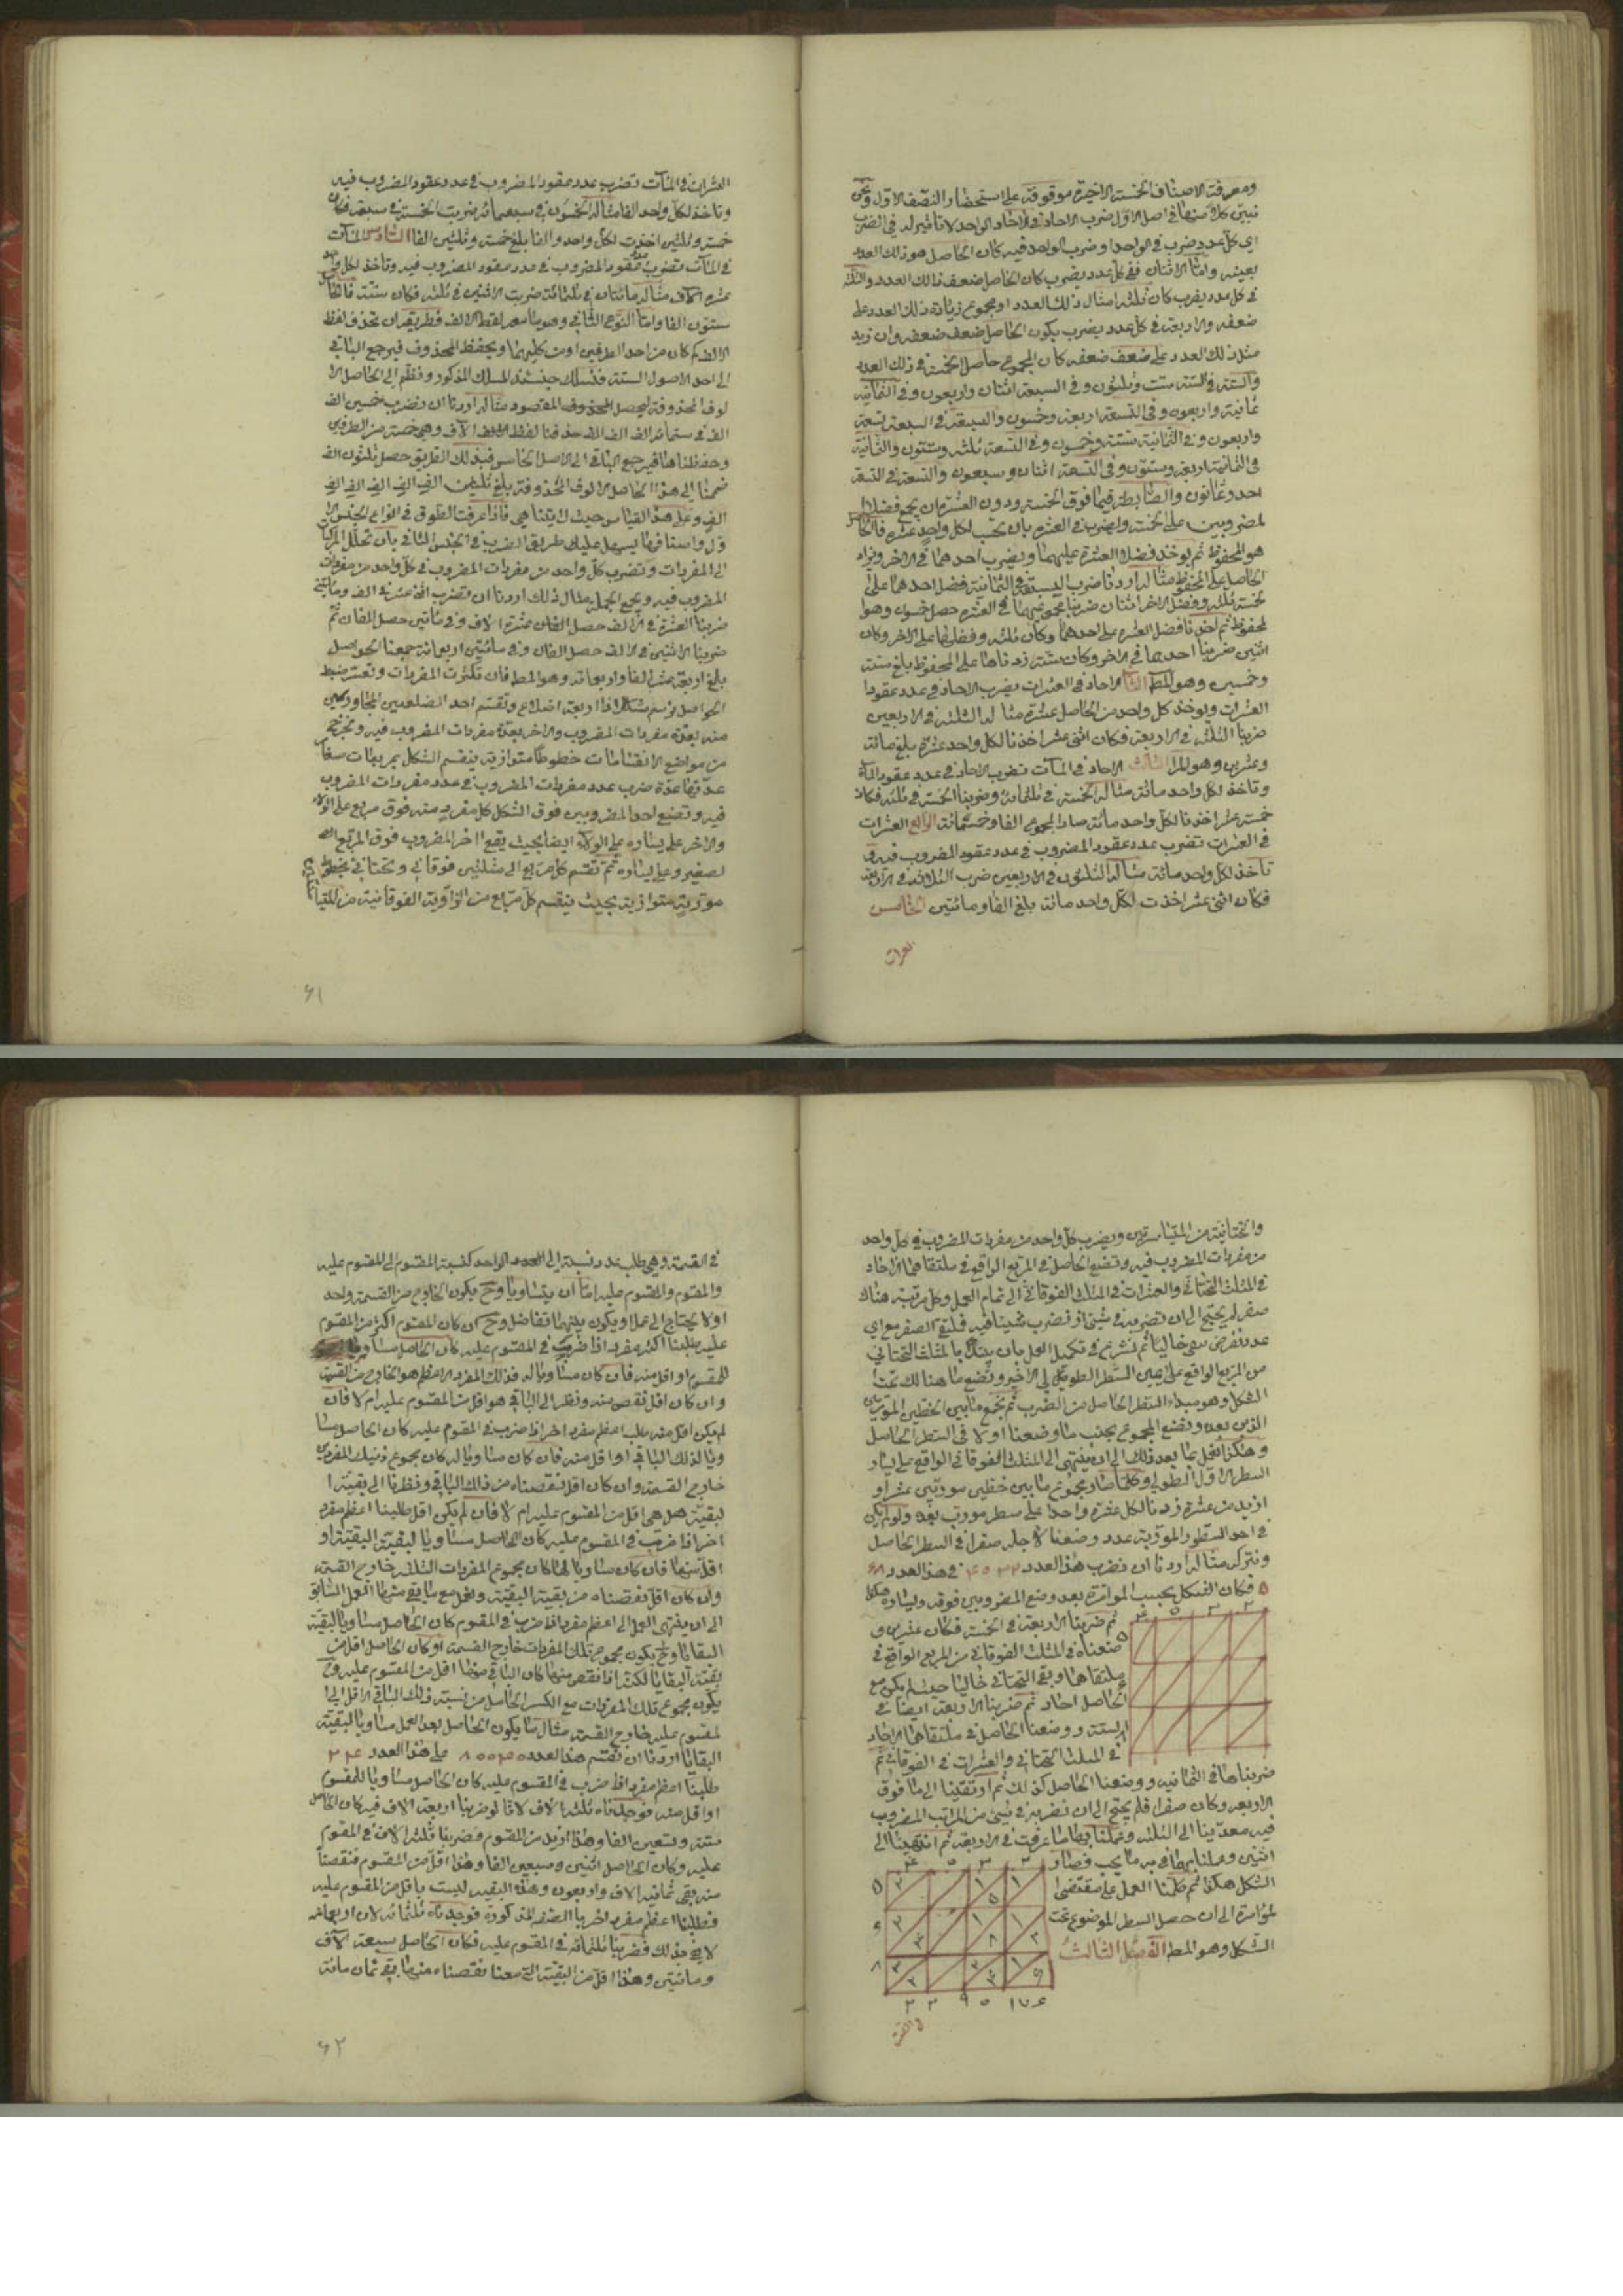 ومعرفة الاصناف الخمسة الاخيرة موقوفة على استحضار النصف الاول ونحن
نبين كلا منها في اصل الاول ضرب الاحاد في الاحاد الواحد لا تأثير له في الضرب
اي كل عدد ضرب في الواحد او ضرب الواحد فيه كان الحاصل هو ذلك العدد
بعينه واما الاثنان ففي كل عدد يضرب كان الحاصل ضعف ذلك العدد والثلثه
في كل عدد يضرب كان ثلثه امثال ذلك العدد او مجموع زيادة ذلك العدد على
ضعفه والاربعة في كل عدد يضرب يكون الحاصل ضعف ضعفه وان زيد
مثل ذلك العدد على ضعف ضعفه كان المجموع حاصل الخمسة في ذلك العدد
والستة في الستة ستة وثلثون وفي السبعة اثنان واربعون وفي الثمانية
ثمانية واربعون وفي التسعة اربعة وخمسون والسبعة في السبعة تسعة
واربعون وفي الثمانية ستة وخمسون وفي التسعة ثلثه وستون والثمانية
في الثمانية اربعة وستون وفي التسعة اثنان وسبعون والتسعة في التسعة
احد وثمانون والضابطة فيما فوق الخمسة ودون العشرة ان يجمع فضل ا
لمضروبين على الخمسة ويضرب في العشرة بان يحسب لكل واحد عشرة فالحاصل
هو المحفوظ ثم يؤخذ فضل العشرة عليهما ويضرب احدهما في الاخر ويزاد
الحاصل على المحفوظ مثاله اردنا ضرب السبعة في الثمانية فضل احدهما على
لخمسة ثلثه وفضل الاخر اثنان ضربنا مجموعهما في العشرة حصل خمسون وهو ا
لمحفوظ ثم اخذنا فضل العشرة على احدهما وكان ثلثه وفضلها على الاخر وكان
اثنين ضربنا احدهما في الاخر وكان ستة زدناها على المحفوظ بلغ ستة
وخمسين وهو المط الثاني الاحاد في العشرات يضرب الاحاد في عدد عقود ا
لعشرات ويؤخذ كل واحد من الحاصل عشرة مثاله الثلثه في الاربعين
ضربنا الثلثه في الاربعة فكان اثنى عشر اخذنا لكل واحد عشرة بلغ مائة
وعشرين وهو المراد الثالث الاحاد في المآت تضرب الاحاد في عدد عقود المآت
وتاخذ لكل واحد مائة مثاله الخمسة في ثلثمائة وضربنا الخمسة في ثلثه فكان
خمسة عشر اخذنا لكل واحد مائة صار المجموع الفا وخمسمائة الرابع العشرات
في العشرات تضرب عدد عقود المضروب في عدد عقود المضروب فيه و
تأخذ لكل واحد مائة مثاله الثلثون في الاربعين ضرب الثلاثة في الاربعة
فكان اثنى عشر اخذت لكل واحد مائة بلغ الفا ومائتين الخامس
العشرات
العشرات في المآت تضرب عدد عقود المضروب في عدد عقود المضروب فيه
وتاخذ لكل واحد الفا مثاله الخمسون في سبعمائة ضربت الخمسة في سبعة فكان
خمسة وثلثين اخذت لكل واحد والفا بلغ خمسة وثلثين الفا السادس المآت
في المآت تضرب عدد عقود المضروب في عدد عقود المضروب فيه وتاخذ لكل واحد
عشرة الاف مثاله مائتان في ثلثمائة ضربت الاثنين في ثلثه فكان ستة فالحاصل
ستون الفا واما النوع الثاني وهو ما معه لفظ الالف فطريقه ان تحذف لفظ
الالف كم كان من احد الطرفين او من كليهما ويحفظ المحذوف فيرجع الباقي
الى احد الاصول الستة فتسلك حينئذ المسلك المذكور وتنظم الى الحاصل الا
لوف المحذوفة ليحصل المقصود مثاله اردنا ان نضرب خمسين الف
الف في ستمائة الف الف الف حذفنا لفظ الآف وهي خمسة من الطرفين
وحفظناها فيرجع الباقي الى الاصل الخامس فبذلك الطريق حصل ثلثون الف
ضممنا الى هذا الحاصل الالوف المحذوفة بلغ ثلثين الف الف الف الف الف
الف وعلى هذا القياس حيث لا يتناهى فاذا عرفت الطرق في انواع الجنس الا
ول واصنافها يسهل عليك طريق الضرب في الجنس الثاني بان تحلل المركبات
الى المفردات وتضرب كل واحد من مفردات المضروب في كل واحد من مفردات
المضروب فيه ويجمع الجملة مثال ذلك اردنا ان نضرب اثنى عشر في الف ومائتين
ضربنا العشرة في الالف حصل عشرة الاف وفي مائتين حصل الفان ثم
ضربنا الاثنين في الالف حصل الفان وفي مائتين اربعمائة جمعنا الحواصل
بلغ اربعة عشر الفا واربعمائة وهو المط فان تكثرت المفردات وتعسر ضبط
الحواصل نرسم شكلا ذا اربعة اضلاع وتقسم احد الضلعين المتجاورين
منه بعدة مفردات المضروب والاخر بعدة مفردات المضروب فيه ونخرج
من مواضع الانقسامات خطوطا متوازية ينقسم الشكل بمربعات صغار
عدتها عدة ضرب عدد مفردات المضروب في عدد مفردات المضروب
فيه وتضع احد المضروبين فوق الشكل كل مفرد منه فوق مربع على الولاء
والاخر على يساره على الولاء ايضا بحيث يقع اخر المضروب فوق المربع ا
لصغير وعلى يساره ثم تقسم كل مربع الى مثلثين فوقاني وتحتاني بخطوط
موربة متوازية بحيث ينقسم كل مربع من الزاوية الفوقانية
٦١
والتحتانية من المتياسرتين ويضرب كل واحد من مفردات المضروب في كل واحد
من مفردات المضروب فيه وتضع الحاصل في المربع الواقع في ملتقاهما الاحاد
في المثلث التحتاني والعشرات في المثلث الفوقاني الى تمام العمل وكل مرتبة هناك
صفر لم يحتج الى ان تضربه في شئ او تضرب شيئا فيه فيلتقي الصفر مع اي
عدد نفرض يبقى خاليا ثم نشرع في تكميل العمل بان يبتدأ بالمثلث التحتاني
من المربع الواقع على يمين السطر الطويل الى الاخير ونضع ما هنالك تحت
الشكل وهو مبداء السطر الحاصل من الضرب ثم نجمع ما بين الخطين الموربين
الذين بعده ونضع المجموع بجنب ما وضعنا اولا في السطر الحاصل
وهكذا نعمل بما بعد ذلك الى ان ينتهى الى المثلث الفوقاني الواقع على يسار
السطر الاول الطولي وكلما صار مجموع ما بين خطين موربين عشرا او
ازيد من عشرة زدنا لكل عشرة واحدا على سطر مورب بعده ولو لم يكن
في احد السطور الموربة عدد وضعنا لاجله صفرا في السطر الحاصل
ونتركه مثاله اردنا ان نضرب هذا العدد ٤٠٣٢ في هذا العدد ٦٨
٥ فكان الشكل بحسب المؤامرة بعد وضع المضروبين فوقه ويساره هكذا
ثم ضربنا الاربعة في الخمسة فكان عشرين و
ضعناه في المثلث الفوقاني من المربع الواقع في
ملتقاهما وبقي التحتاني خاليا حيث لم يكن مع
الحاصل احاد ثم ضربنا الاربعة ايضا في
الستة ووضعنا الحاصل في ملتقاهما الاحاد
في المثلث التحتاني والعشرات في الفوقاني ثم
ضربناها في الثمانية ووضعنا الحاصل كذلك ثم ارتقينا الى ما فوق
الاربعه وكان صفرا فلم يحتج الى ان نضربه في شئ من المراتب المضروب
فيه فعدينا الى الثلثه وعملنا بها ما عرفت في الاربعة ثم انتهينا الى
اثنين وعملنا بهما في مه ما يجب فصار
الشكل هكذا ثم كملنا العمل على مقتضى ا
لمؤامرة الى ان حصل السطر الموضوع تحت
الشكل وهو المط الفصل الثالث
٤ ٥ ٣ ٢
٥ ٦ ٨
٢ ٢ ٩ ٥ ١ ٧ ٦
في القسمة
في القسمة وهي طلب عدد نسبته الى الواحد كنسبة المقسوم الى المقسوم عليه
والمقسوم والمقسوم عليه اما ان يتساويا وح يكون الخارج من القسمة واحد
او لا يحتاج الى عمل او يكون بينهما تفاضل وح ان كان المقسوم اكثر من المقسوم
عليه طلبنا اكثر مفرد اذا ضرب في المقسوم عليه كان الحاصل مساويا
للمقسوم او اقل منه فان كان مساويا له فذلك المفرد الاعظم هو الخارج من القسمة
وان كان اقل نقص منه ونظر الى الباقي هو اقل من المقسوم عليه ام لا فان
لم يكن اقل منه طلب اعظم مفرد اخر اذا ضرب في المقسوم عليه كان الحاصل مسا
ويا لذلك الباقي او اقل منه فان كان مساويا له كان مجموع ذينك المفردين
خارج القسمة وان كان اقل نقصناه من ذلك الباقي ونظرنا الى بقية ا
لبقية هل هي اقل من المقسوم عليه ام لا فان لم يكن اقل طلبنا اعظم مفرد
اخر اذا ضرب في المقسوم عليه كان الحاصل مساويا لبقية البقية او
اقل منها فان كان مساويا لها كان مجموع المفردات الثلثه خارج القسمة
وان كان اقل نقصناه من بقية البقية ونعمل مع ما بقي منها العمل السابق
الى ان ينتهى العمل الى اعظم مفرد اذا ضرب في المقسوم كان الحاصل مساويا لبقية
البقايا وح يكون مجموع تلك المفردات خارج القسمة او كان الحاصل اقل من
بقية البقايا لكنه اذا نقص منها كان الباقي منها اقل من المقسوم عليه وح
يكون مجموع تلك المفردات مع الكسر الحاصل من نسبة ذلك الباقي الاقل الى ا
لمقسوم عليه خارج القسمة مثال ما يكون الحاصل بعد العمل مساويا لبقية
البقايا اردنا ان نقسم هذا العدد على هذا العدد ٢٤
طلبنا اعظم مفرد اذا ضرب في المقسوم عليه كان الحاصل مساويا للمقسوم
او اقل منه فوجدناه ثلثه الاف لانا لو ضربنا اربعة الاف فيه كان الحاصل
ستة وتسعين الفا وهذا ازيد من المقسوم فضربنا ثلثه الاف في المقسوم
عليه وكان الحاصل اثنين وسبعين الفا وهذا اقل من المقسوم فنقصناه
منه بقى ثمانيه الاف واربعون وهذه البقية ليست باقل من المقسوم عليه
فطلبنا اعظم مفرد اخر بالصفة المذكورة فوجدناه ثلثمائة لان اربعمائة
لا يفي بذلك فضربنا ثلثمائة في المقسوم عليه فكان الحاصل سبعة الآف
ومائتين وهذا اقل من البقية التي معنا نقصناه منها بقي ثمان مائة
٦٢